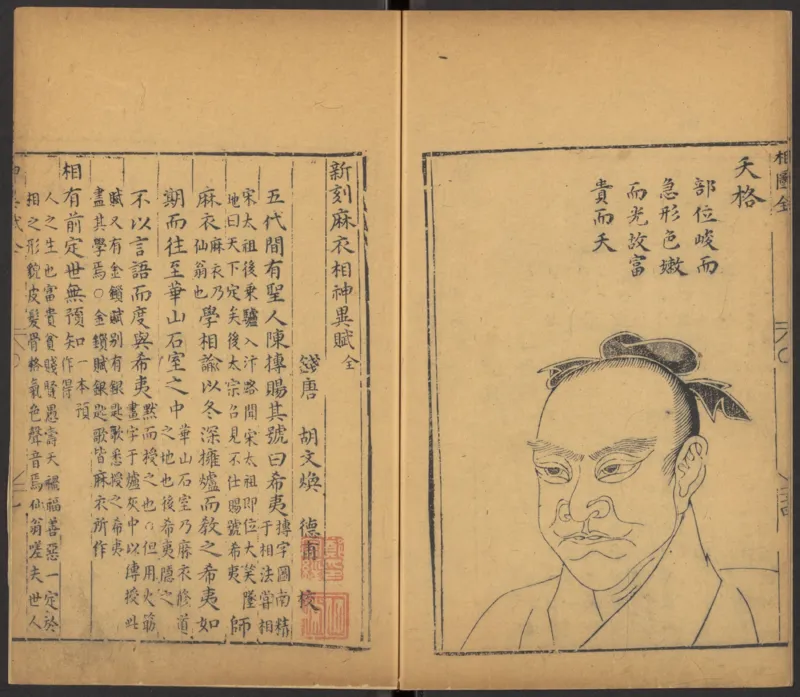 相圖全
夭格
部位峻而
急形色嫩
而光故富
貴而夭
新刻麻衣相神異賦全
錢唐 胡文煥 德甫 校
五代間有聖人陳摶賜其號曰希夷
摶字圖南精
于相法嘗相
宋太祖後乘驢入汴略聞宋太祖即位大笑墜
地曰天下定矣後太宗召見不仕賜號希夷
師
麻衣
麻衣乃
仙翁也
學相論以冬深擁爐而教之希夷如
期而往至華山石室之中
華山石室乃麻衣修道
之地也後希夷隱之
不以言語而度與希夷
默而授之也○但用火筯
畫字于爐灰中以傳授此
賦又有金鎖賦別有銀匙歌悉授之希夷
盡其學焉○金鎖賦銀匙歌皆麻衣所作
相有前定世無預知
一本預
作得
人之生也富貴貧賤賢愚壽夭禍福善惡一定於
相之形貌皮髮骨骼氣色聲音焉仙翁嗟夫世人